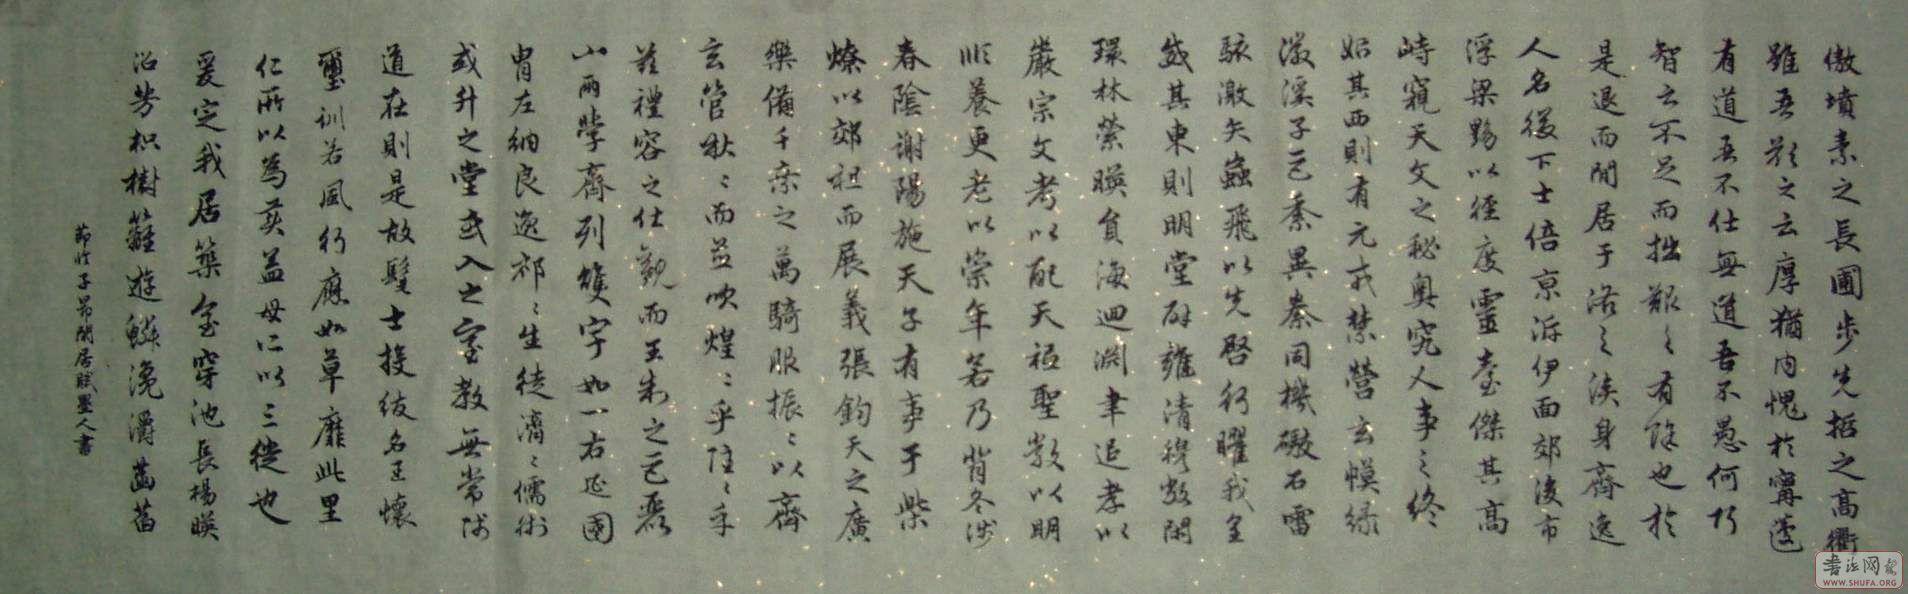 傲墳素之長圃步先哲之高衢
雖吾顏之云厚猶内愧於寗蘧
有道吾不仕無道吾不愚何巧
智之不足而拙艱之有餘也於
是退而閒居于洛之涘身齊逸
人名綴下士倍京泝伊面郊後市
浮梁黝以徑度靈臺傑其高
峙窺天文之秘奥究人事之終
始其西則有元戎禁營玄幙緑
徽溪子巨黍異絭同機礮石雷
駭激矢蟲飛以先啓行曜我皇
威其東則明堂辟雍清穆敞閑
環林縈暎負海迴淵聿追孝以
嚴宗文考以配天祗聖敬以明
順養更老以崇年若乃背冬涉
春陰謝陽施天子有事于柴
燎以郊祖而展義張鈞天之廣
樂備千乘之萬騎服振〻以齊
玄管啾〻而並吹煌〻乎隱〻乎
兹禮容之壮觀而王制之巨麗
兩學齊列雙宇如一右延國
胄左納良逸祁〻生徒濟〻儒術
或升之堂或入之室教無常師
道在則是故髦士投紱名王懷
璽訓若風行應如草靡此里
仁所以為美孟母所以三徙也
爰定我居築室穿池長楊暎
沼芳枳樹籬遊鱗瀺灂菡萏
節臨子昂閒居賦墨人書
書法网
WWW.SHUFA.ORG